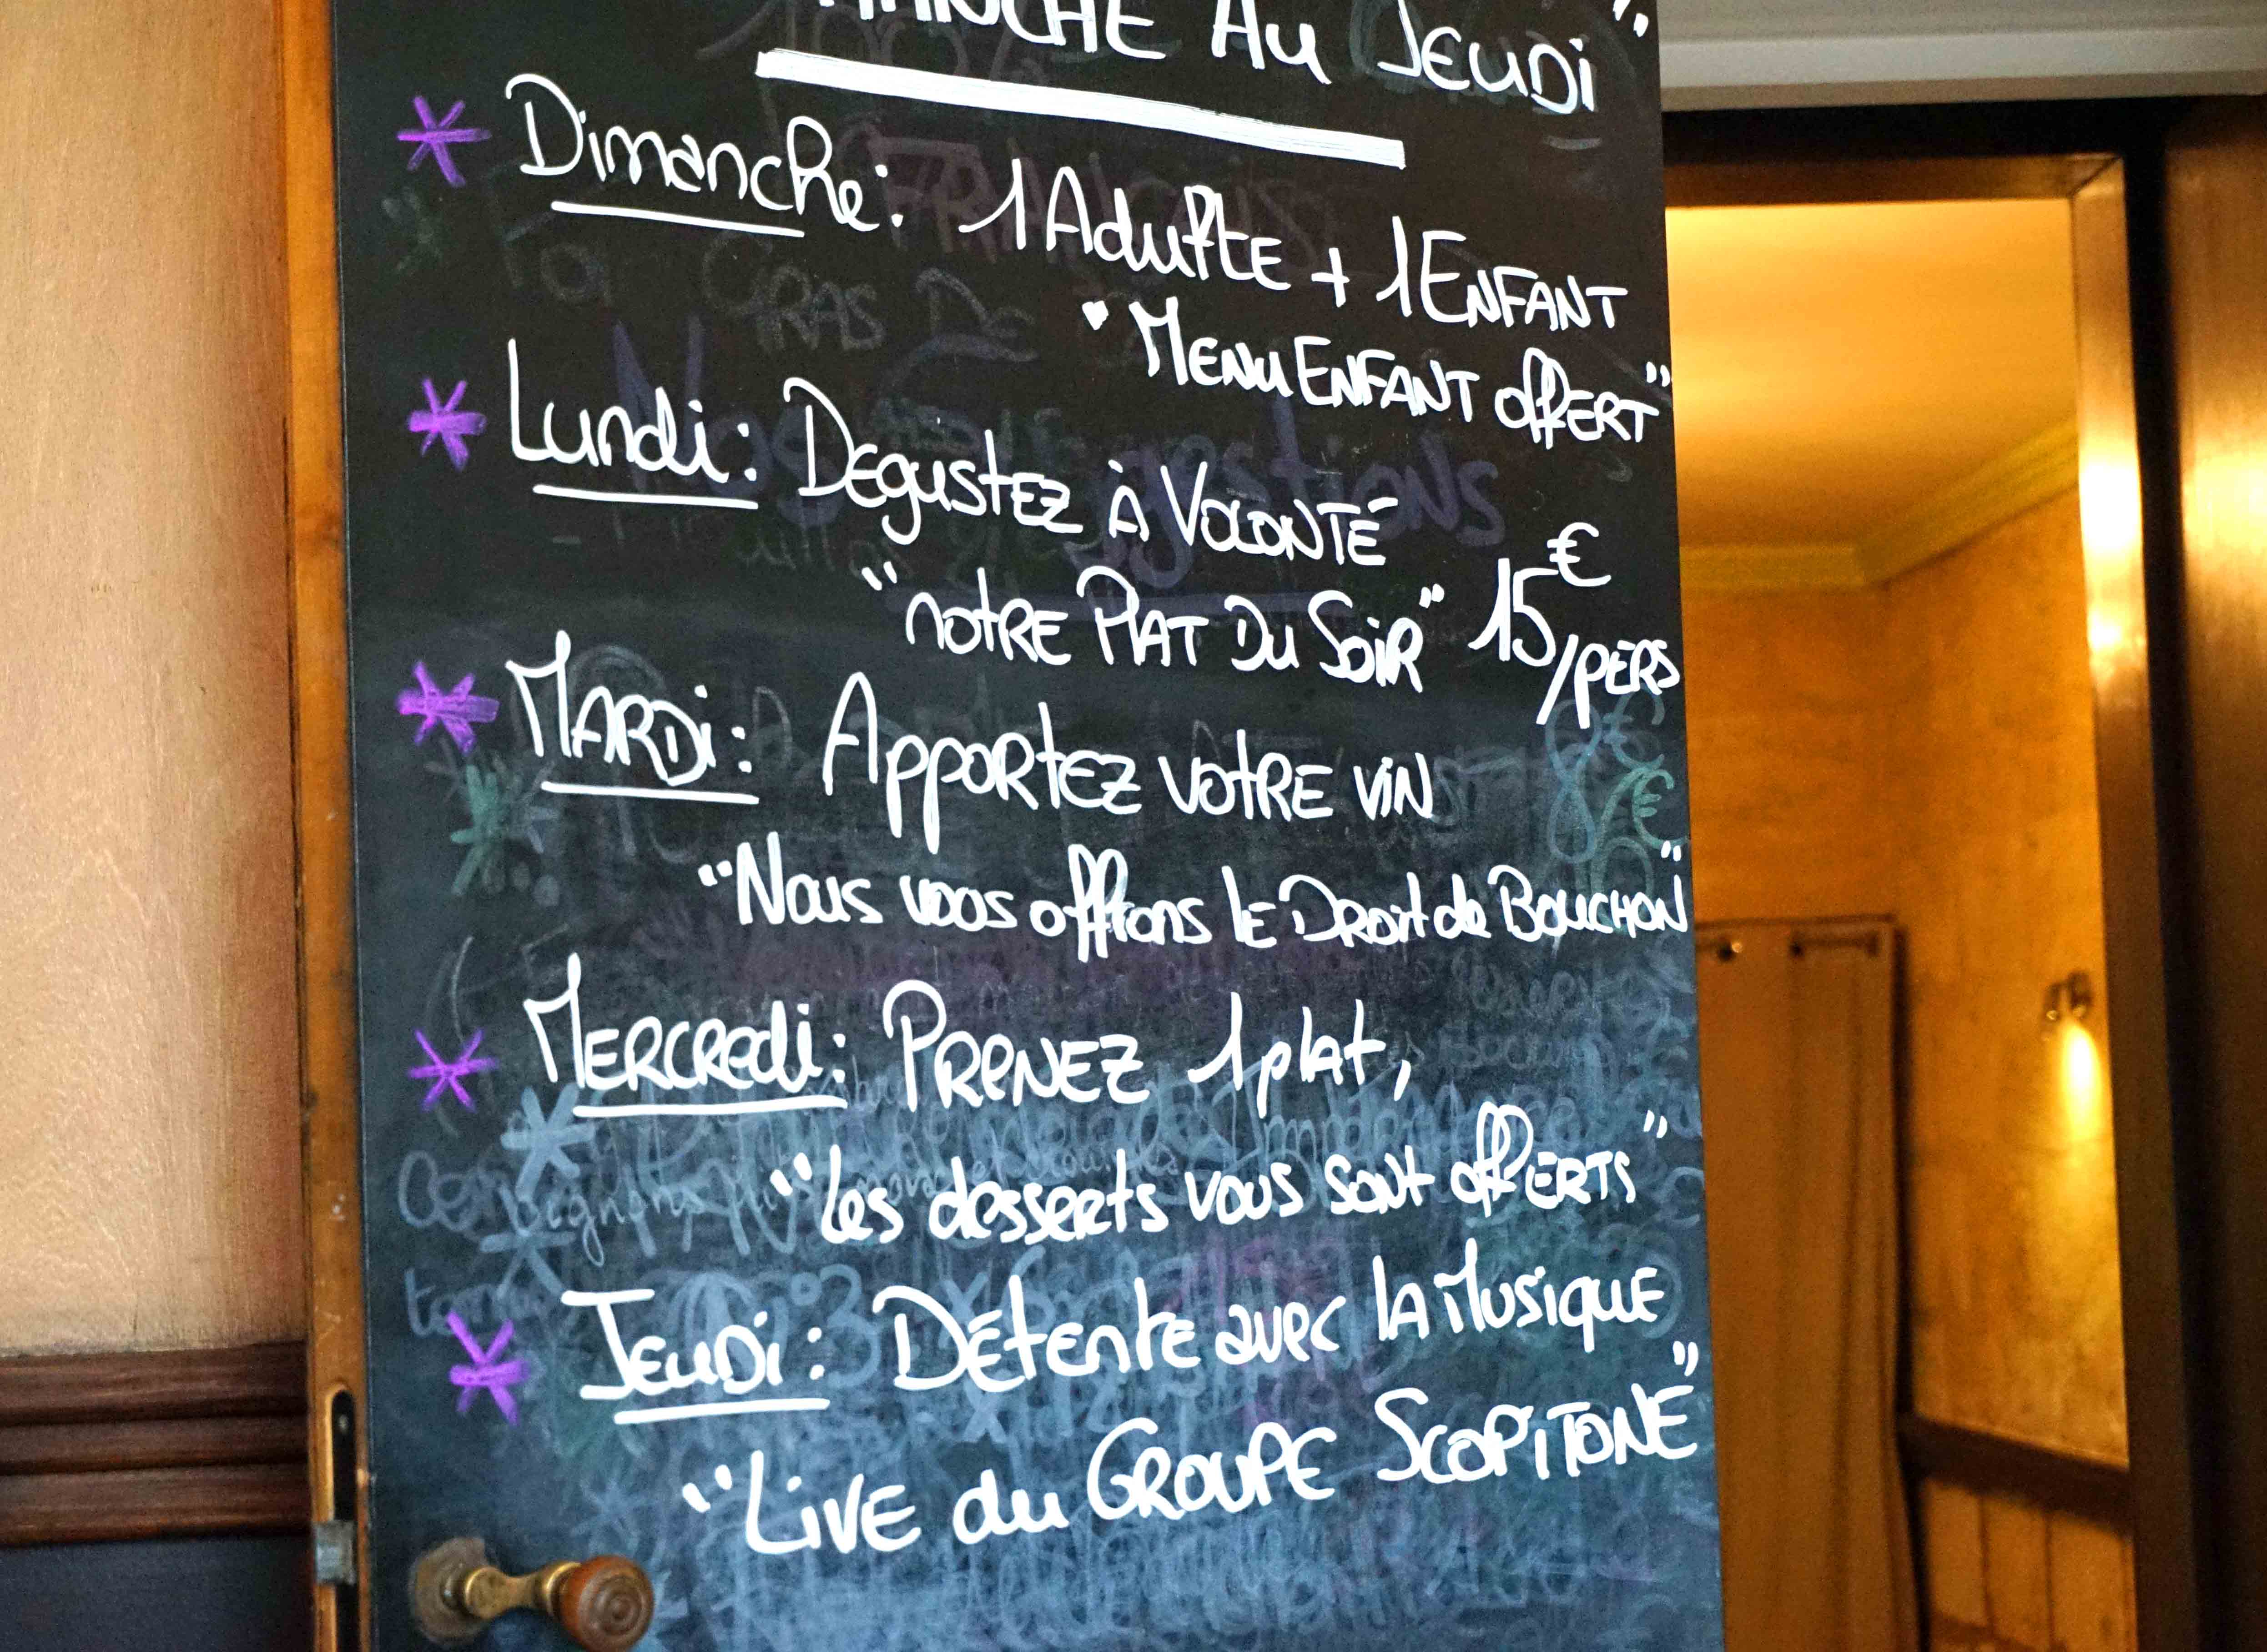 AU JEUDi
Dimanche: 1 Adulte + 1 ENFANT
"MENU ENFANT offERT"
Lundi: DEgustEz à VOLONTÉ
"notRE PlAT Du SoiR" 15€/pERS
MARDi: AppoRtEz votRE viN
"Nous vous offrons lE DRoit de BOUCHON"
MERCREdi: PRENEZ 1 plat,
"les desserts vous sont offERTS"
JEUDi: DÉtente avec lA MusiquE
"LiVE du GROUPE SCOPiTONE"